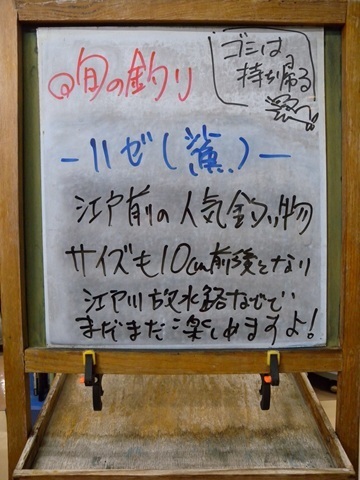 ◎旬の釣り
ゴミは
持ち帰る
ーハゼ(鯊)ー
江戸前の人気釣り物
サイズも10cm前後となり
江戸川放水路などで
まだまだ楽しめますよ!